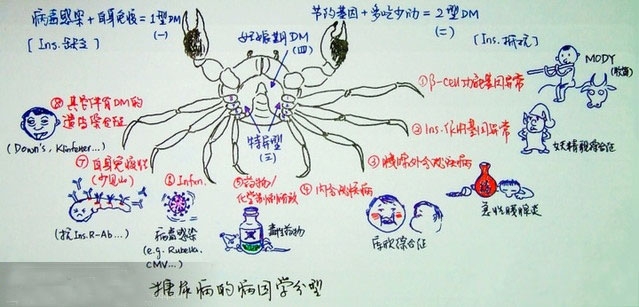 病毒感染+自身免疫=1型DM
(一)
[Ins.缺乏]
节约基因+多吃少动=2型DM
(二)
[Ins.抵抗]
妊娠期DM
(四)
特异型
(三)
①β-Cell功能基因异常
MODY
(牧笛)
②Ins.作用基因异常
妖精貌综合征
③胰腺外分泌疾病
急性胰腺炎
④内分泌疾病
库欣综合征
⑤药物/
化学制剂所致
毒性药物
⑥Infen.
病毒感染
(e.g. Rubella.
CMV...)
⑦自身免疫性
(少见)
(抗Ins.R-Ab...)
⑧其它伴有DM的
遗传综合征
(Down's, Klinfelter...)
糖尿病的病因学分型